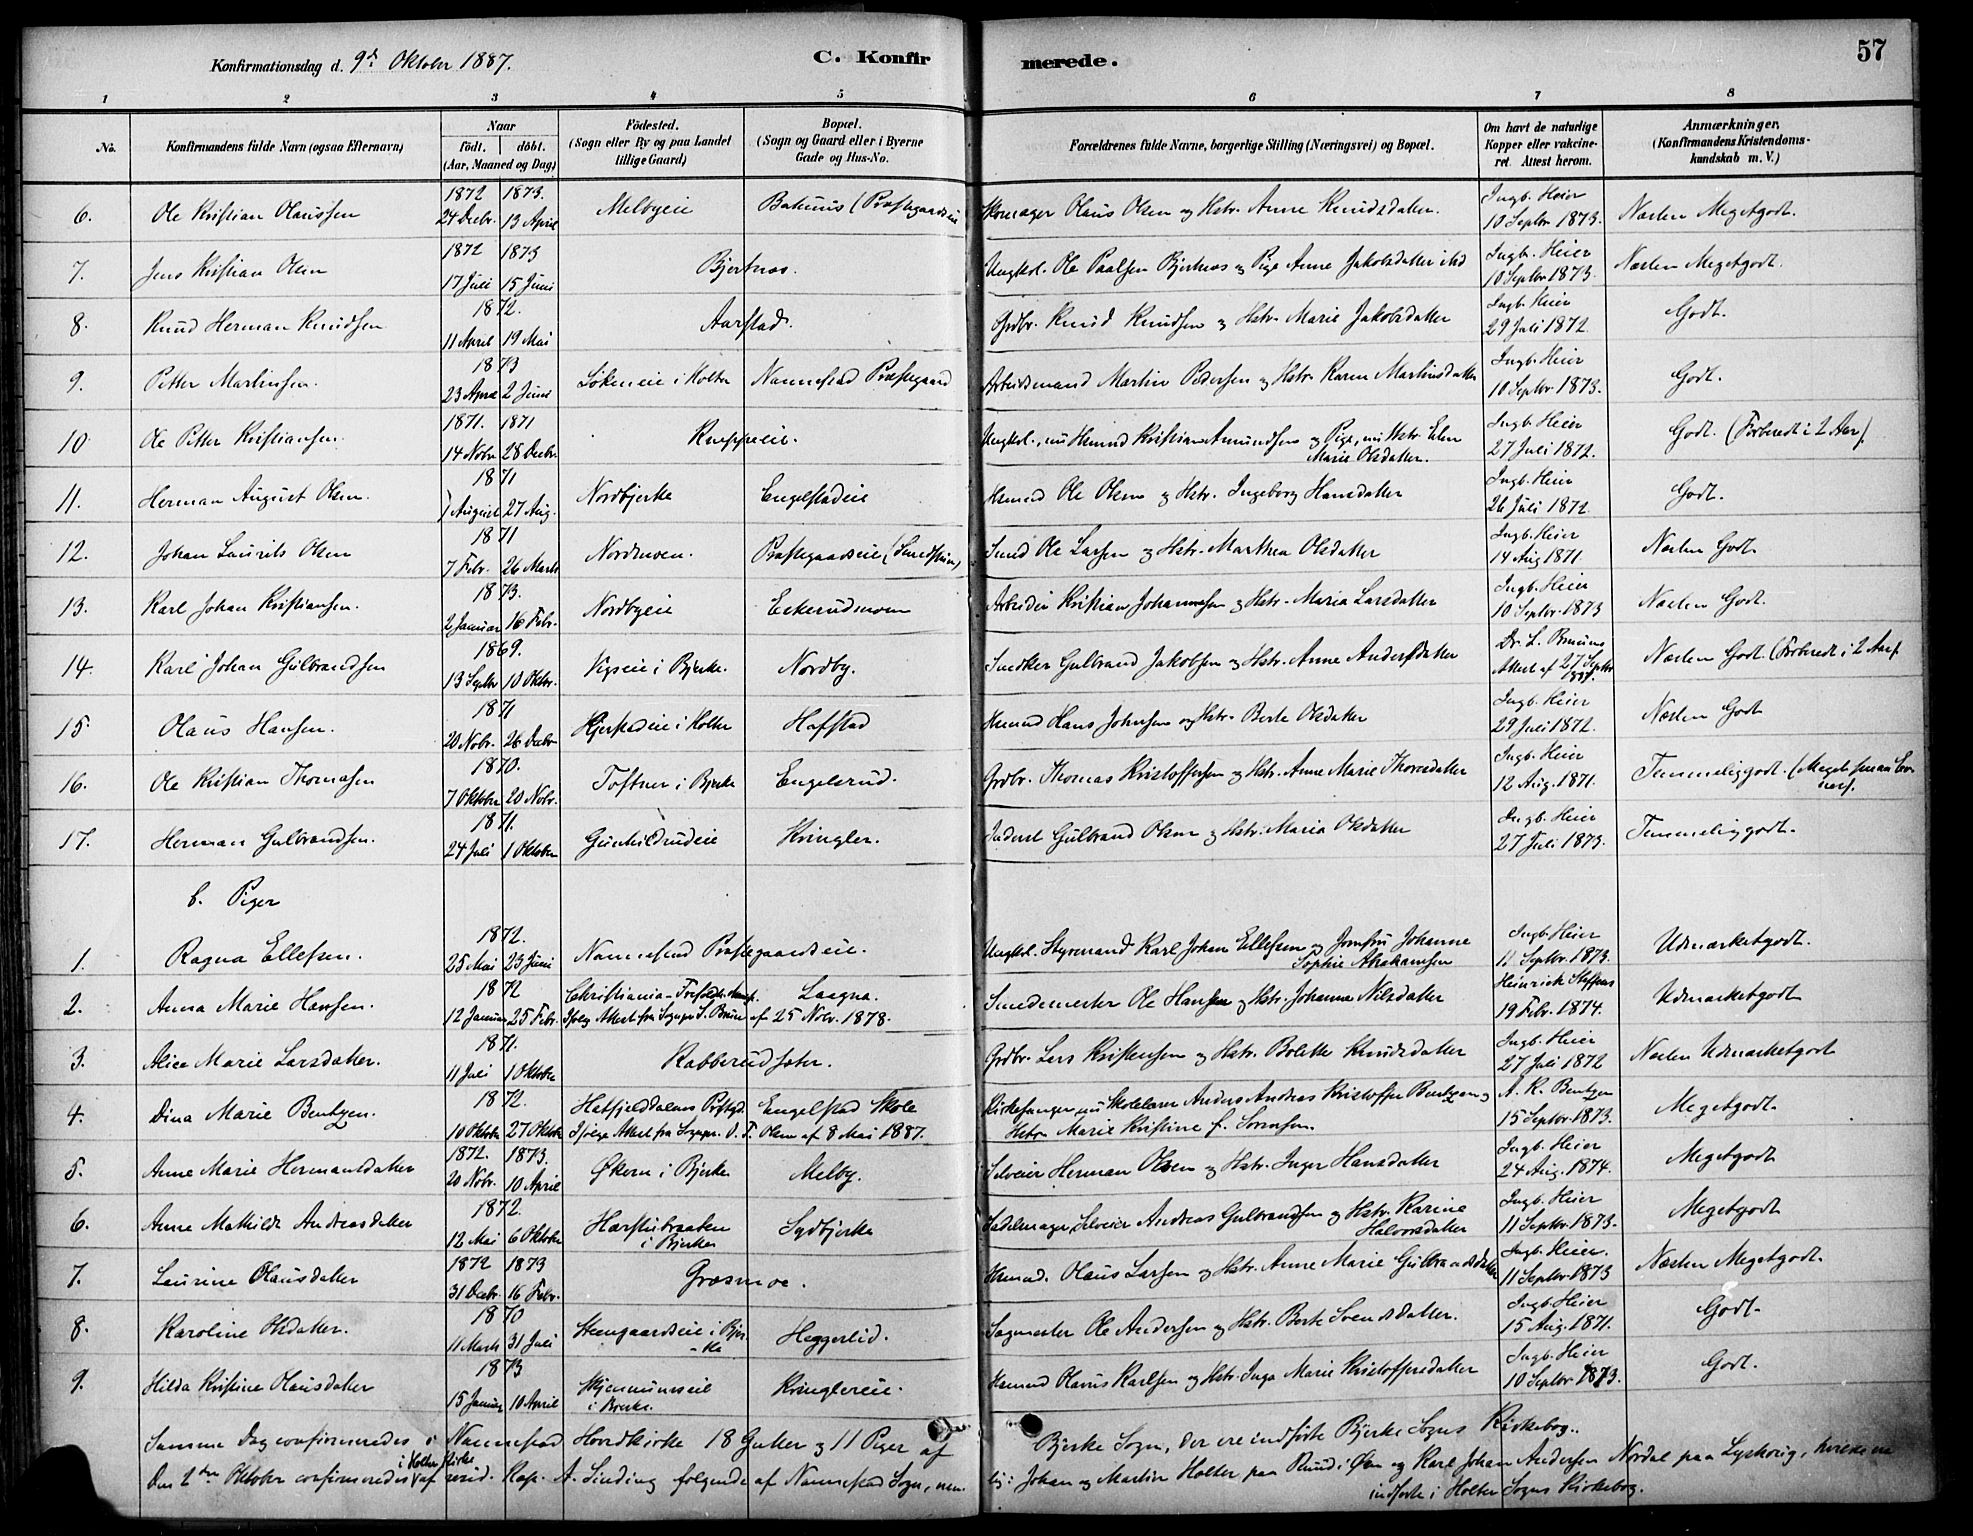 Konfirmationsdag d. 9de Oktober 1887.
C. Konfirmerede.
57
1 2 3 4 5 6 7 8
No. Konfirmandens fulde Navn (ogsaa Efternavn) Naar født. døbt. (Aar, Maaned og Dag) Fødested. (Sogn eller By og paa Landet tillige Gaard) Bopæl. (Sogn og Gaard eller i Byerne Gade og Hus-No. Forældrenes fulde Navne, borgerlige Stilling (Næringsvei) og Bopæl. Om havt de naturlige Kopper eller vakcineret. Attest herom. Anmærkninger. (Konfirmandens Kristendomskundskab m. V.)
6. Ole Kristian Olaussen 1872 24 Decbr. 1873. 13 April Melbyeie Bakuus (Præstegaardseie Skomager Olaus Olsen og Hstr. Anne Knudsdatter. Ingb. Heier 10 Septbr 1873. Næsten Megetgodt.
7. Jens Kristian Olsen 1872 17 Juli 1873 15 Juni Bjertnæs. Ungkl. Ole Paalsen Bjertnæs og Pige Anne Jakobsdatter ibd Ingb. Heier 10 Septbr 1873. Næsten Megetgodt.
8. Knud Herman Knudsen 1872. 11 April 19 Mai Aarstad. Grdbr. Knud Knudsen og Hstr. Marie Jakobsdatter Ingb. Heier 29 Juli 1872. Godt.
9. Petter Martinsen. 1873 23 April 2 Juni Løkeneie i Holter Nannestad Præstegaard Arbeidsmand Martin Pedersen og Hstr. Karen Martinsdatter Ingb. Heier 10 Septbr 1873. Godt.
10. Ole Petter Kristiansen. 1871. 14 Novbr 1871 28 Decbr. Kneppeie. Ungkl., nu Hsmnd Kristian Amundsen og Pige, nu Hstr. Elen Marie Olsdatter. Ingb. Heier 27 Juli 1872. Godt. (Forberedt i 2 Aar).
11. Herman August Olsen. 1871 1 August 27 Aug. Nordbjerke Engelstadeie Hsmnd Ole Olsen og Hstr. Ingeborg Hansdatter Ingb. Heier 26 Juli 1872. Godt.
12. Johan Laurits Olsen 1871 7 Febr. 26 Marts Nordmoen. Præstegaardseie (Smedstuen) Smed Ole Larsen og Hstr. Marthea Olsdatter Ingb. Heier 14 Aug 1871 Næsten Godt.
13. Karl Johan Kristiansen. 1873. 2 Januar 16 Febr. Nordbyeie Eckerudmoen Arbeider Kristian Johannesen og Hstr. Maria Larsdatter Ingb. Heier 10 Septbr. 1873 Næsten Godt.
14. Karl Johan Gulbrandsen 1869. 13 Septbr 10 Oktbr. Vegseie i Bjerke. Nordby. Snedker Gulbrand Jakobsen og Hstr. Anne Andersdatter Dr. L. Attest af 27 Septbr 1887. Næsten Godt (Forberedt i 2 Aar).
15. Olaus Hansen. 1871 20 Novbr. 26 Decbr Hjerstadeie i Holter Hafstad Hsmnd Hans Johnsen og Hstr. Berte Olsdatter Ingb. Heier 29 Juli 1872. Næsten Godt
16. Ole Kristian Thomasen 1870. 7 Oktober 20 Novbr. Toftner i Bjerke Engelsrud. Grdbr. Thomas Kristoffersen og Hstr. Anne Marie Thoresdatter Ingb. Heier 12 Aug. 1871. Temmeliggodt. (Meget smaa Evner).
17. Herman Gulbrandsen. 1871. 24 Juli 1 Oktober Gunhildrudeie Kringler. Inderst Gulbrand Olsen og Hstr. Maria Olsdatter Ingb. Heier 27 Juli 1873. Temmeliggodt.
b. Piger
1. Ragna Ellefsen. 1872. 25 Mai 23 Juni Nannestad Præstegaardseie. Ungkl. Styrmand Karl Johan Ellefsen og Jomfru Johanne Sophie Abrahamsen Ingb. Heier 11 Septbr. 1873. Udmærketgodt.
2. Anna Marie Hansen. 1872 12 Januar 25 Febr. Christiania-Trefoldighed. Laagna. Ifølge Attest fra Sognepr. Bruun af 25 Novr. 1878. Smedemester Ole Hansen og Hstr. Johanna Nilsdatter Heinrich Steffens 19 Febr. 1874. Udmærketgodt
3. Alice Marie Larsdatter. 1871. 11 Juli 1 Oktober Rabberudsæter. Grdbr. Lars Kristensen og Hstr. Bolette Knudsdatter Ingb. Heier 27 Juli 1872 Næsten Udmærketgodt
4. Dina Marie Bentzen. 1872. 10 Oktober 27 Oktober Hatfjelddalens Prstgd. Engelstad Skole Ifølge Attest fra Sognepr. O. T. Olsen af 8 Mai 1887. Kirkesanger nu Skolelærer Anders Andreas Kristoffer Bentzen og Hstr. Marie Kristine f. Sørensen. A. K. Bentzen 15 Septbr. 1873. Megetgodt.
5. Anne Marie Hermansdatter 1872. 20 Novbr. 1873. 10 April Økern i Bjerke Melby. Selveier Herman Olsen og Hstr. Inger Hansdatter Ingb. Heier 24 Aug. 1874. Megetgodt
6. Anne Mathilde Andreasdatter 1872. 12 Mai 6 Oktober Hærstubraaten i Bjerke Sydbjerke Sadelmager, Selveier Andreas Gulbrandsen og Hstr. Karine Halvorsdatter Ingb. Heier 11 Septbr. 1873. Megetgodt
7. Laurine Olausdatter 1872 31 Decbr. 1873 16 Febr. Græsmoe. Hsmnd. Olaus Larsen og Hstr. Anne Marie Gulbrandsdatter Ingb. Heier. 11 Septbr 1873 Næsten Megetgodt.
8. Karoline Olsdatter. 1870 11 Marts 31 Juli Steengaardseie i Bjerke Heggerlid. Sagmester Ole Andersen og Hstr. Berte Svendsdatter. Ingb. Heier 15 Aug. 1871. Godt.
9. Hilda Kristine Olausdatter 1873 15 Januar 10 April Skjenmunseie i Bjerke. Kringlereie. Hsmnd Olaus Karlsen og Hstr. Inga Marie Kristoffersdatter Ingb. Heier 10 Septbr 1873. Godt.
Samme Dag confirmeredes i Nannestad Hovedkirke 18 Gutter og 11 Piger af Bjerke Sogn, der ere indførte Bjerke Sogns Kirkebog.
Den 2den Oktober confirmeredes i Holter Kirke af resid. Kap. A. Sinding følgende af Nannestad Sogn, nemlig: Johan og Martin Holter paa Rud i Øen og Karl Johan Andersen Nordal paa Lyshorig, hvilke ere indførte i Holter Sogns Kirkebog.